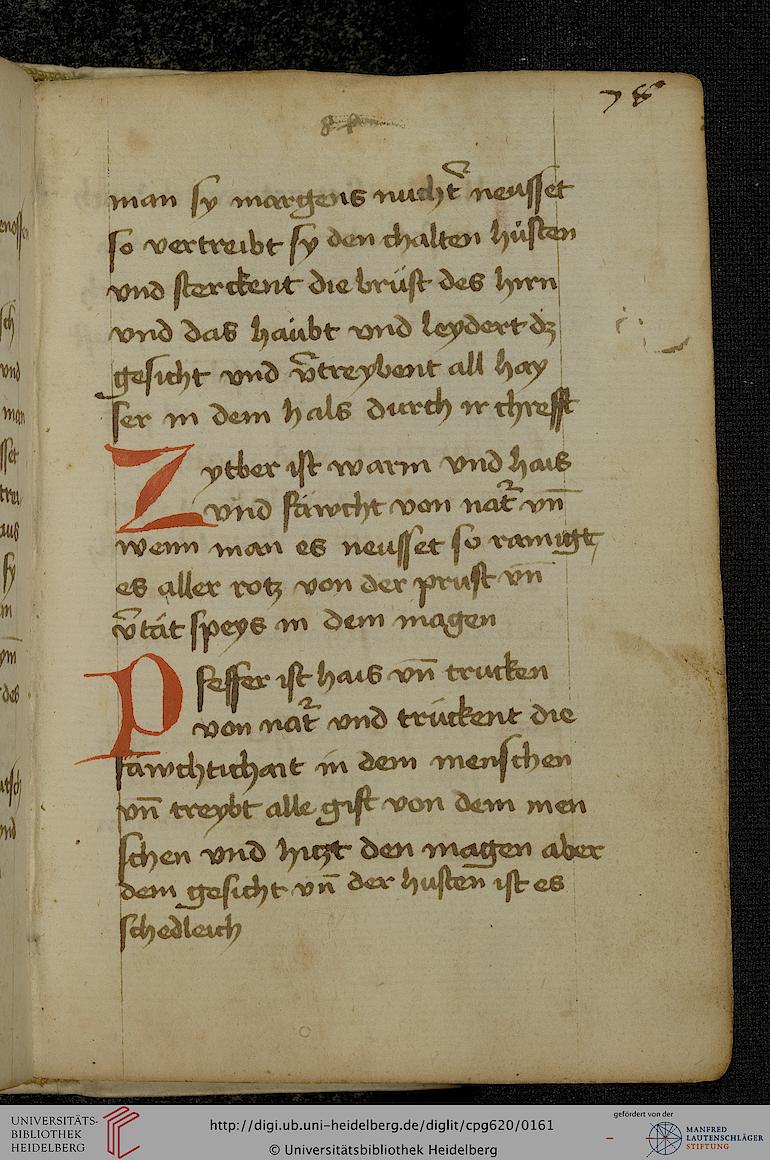 78
man sy margens nucht̄ neusset
so vertreibt sy den chalten hüsten
vnd sterckent die brüst des hirn
vnd das haübt vnd leydert dz
gesicht vnd v̄treybent all hay
ser in dem hals durch ir chrefft
Zytber ist warm vnd hais
vnd fäwcht von nat̄ vn̄
wenn man es neusset so ramigt
es aller rotz von der prust vn̄
v̄tät speys in dem magen
Pfeffer ist hais vn̄ trucken
von nat̄ vnd trückent die
fäwchtichait in dem menschen
vn̄ treybt alle gift von dem men
schen vnd hitzt den magen aber
dem gesicht vn̄ der husten̄ ist es
schedleich
UNIVERSITÄTS-
BIBLIOTHEK
HEIDELBERG
http://digi.ub.uni-heidelberg.de/diglit/cpg620/0161
© Universitätsbibliothek Heidelberg
gefördert von der
MANFRED
LAUTENSCHLÄGER
STIFTUNG